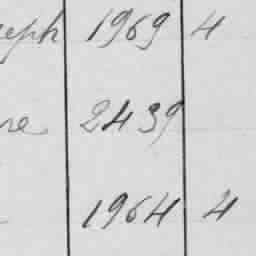 eph 1969 4
re 2439
1964 4